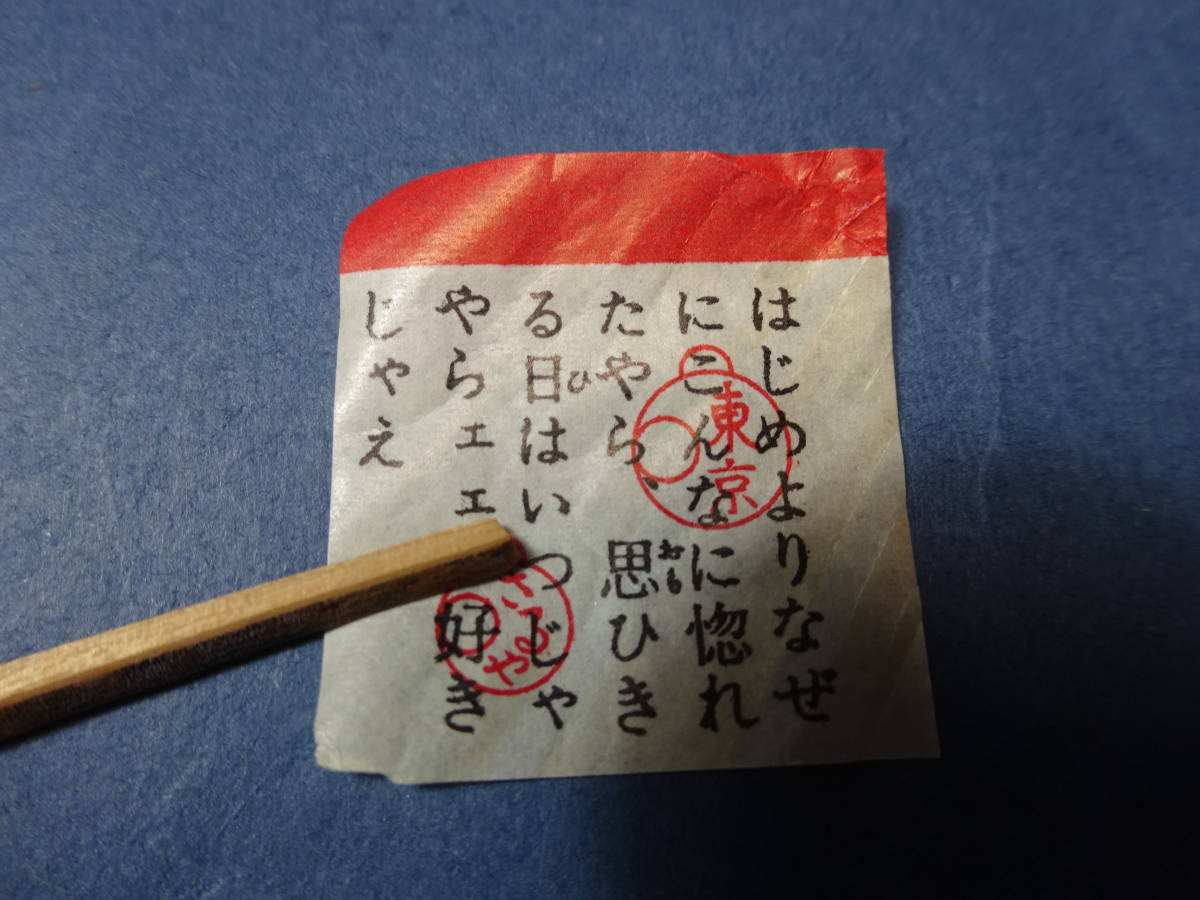 はじめよりなぜ
にこんなに惚れ
たやら、思ひき
る日はいつじゃ
やらエエ好き
じゃえ
おも
ひ
東京
さるや